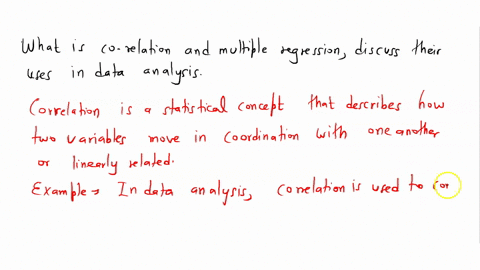 What is co-relation and multiple regression, discuss their
uses in data analysis.
Correlation is a statistical concept that describes how
two variables move in coordination with one another
or linearly related.
Example → In data analysis, correlation is used to cor